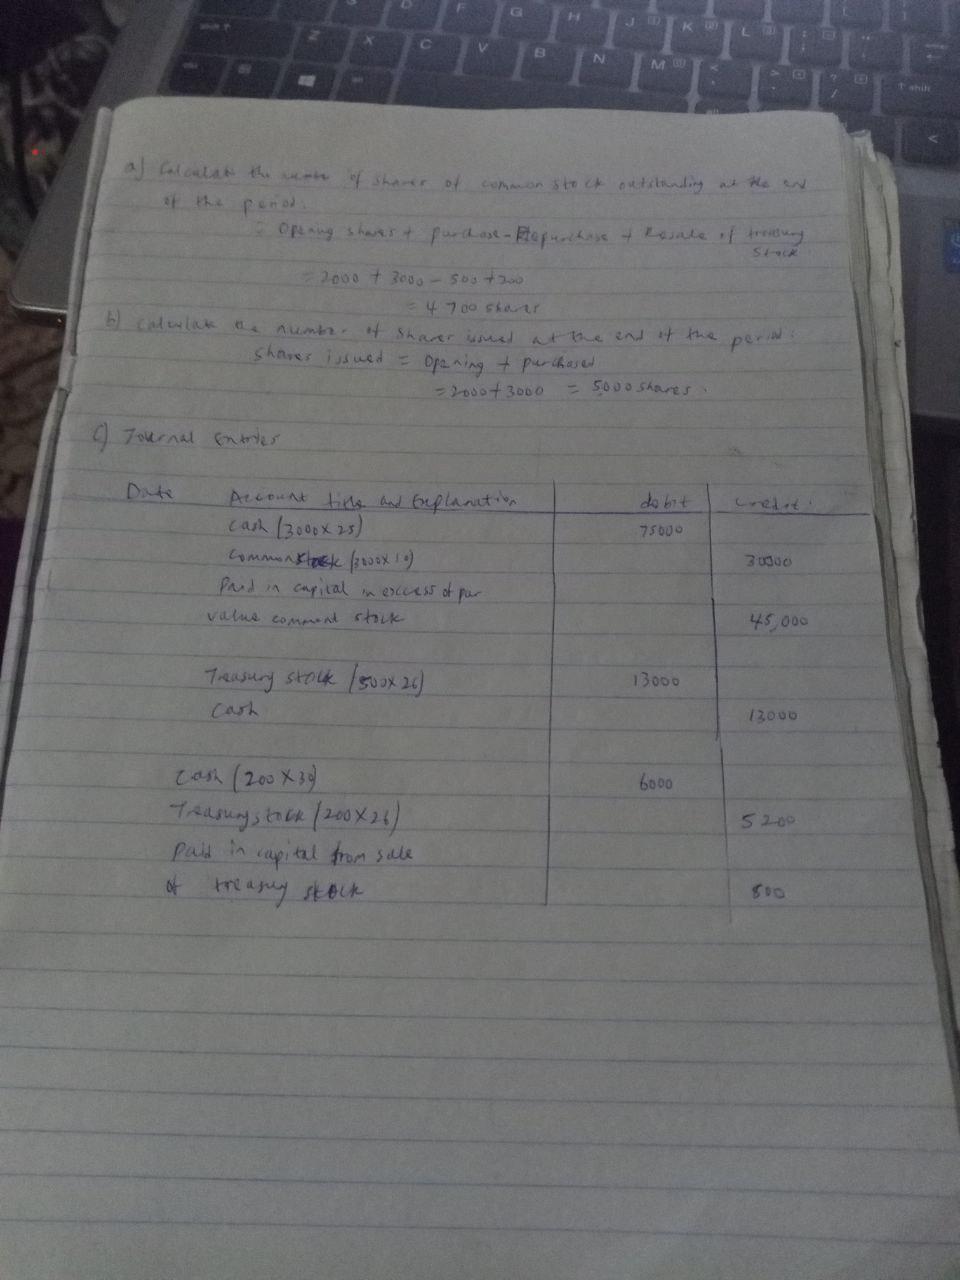 a) Calculate the number of shares of common stock outstanding at the end
of the period.
= Opening shares + purchase - Repurchase + Resale of treasury
stock
= 2000 + 3000 - 500 + 200
= 4700 shares
b) Calculate the number of shares issued at the end of the period:
Shares issued = Opening + purchased
= 2000 + 3000 = 5000 shares.
c) Journal Entries
Date Account title and Explanation debit credit.
Cash (3000 x 25) 75000
Common stock (3000 x 10) 30000
Paid in capital in excess of par
value commond stock 45,000
Treasury stock (500 x 26) 13000
Cash 13000
Cash (200 x 30) 6000
Treasury stock (200 x 26) 5200
Paid in capital from sale
of treasury stock 800